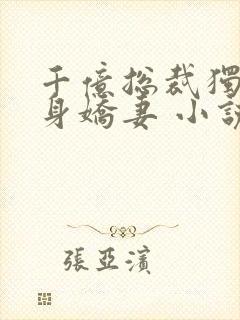 千億總裁獨
身嬌妻 小說
張亞濱